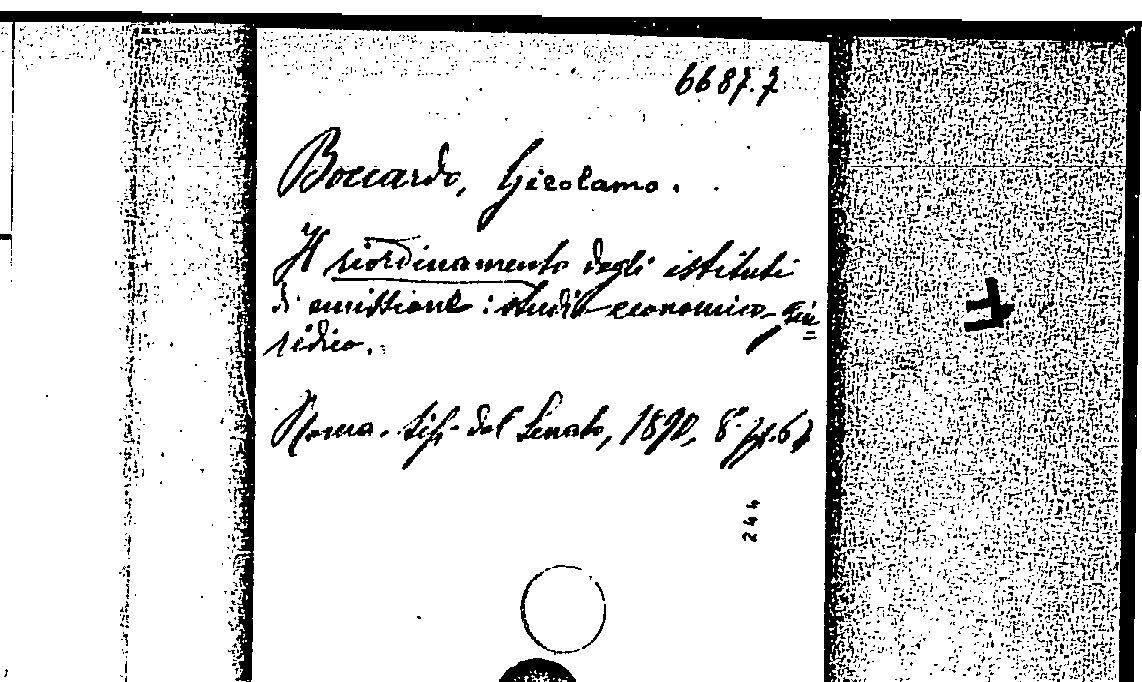 6687.7
Boccardo, Girolamo.
Il riordinamento degli istituti
di emissione: studio economico-giu=
ridico.
Roma. tip. del Senato, 1890, 8° pp. 67
244